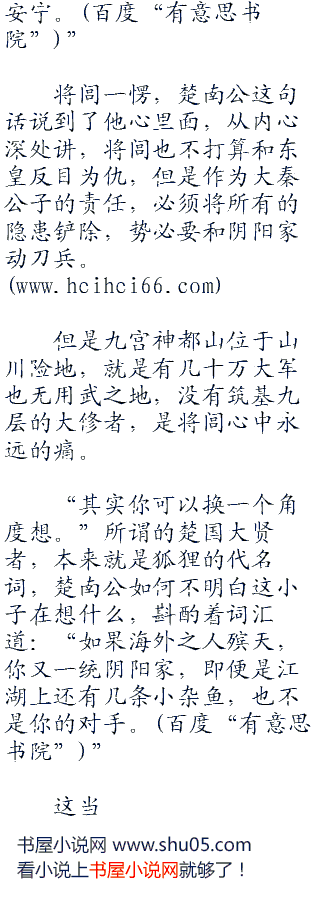 安宁。(百度“有意思书
院”)”
将闾一愣，楚南公这句
话说到了他心里面，从内心
深处讲，将闾也不打算和东
皇反目为仇，但是作为大秦
公子的责任，必须将所有的
隐患铲除，势必要和阴阳家
动刀兵。
(www.hcihci66.com)
但是九宫神都山位于山
川险地，就是有几十万大军
也无用武之地，没有筑基九
层的大修者，是将闾心中永
远的痛。
“其实你可以换一个角
度想。”所谓的楚国大贤
者，本来就是狐狸的代名
词，楚南公如何不明白这小
子在想什么，斟酌着词汇
道：“如果海外之人殡天，
你又一统阴阳家，即便是江
湖上还有几条小杂鱼，也不
是你的对手。(百度“有意思
书院”)”
这当
书屋小说网 www.shu05.com
看小说上书屋小说网就够了！